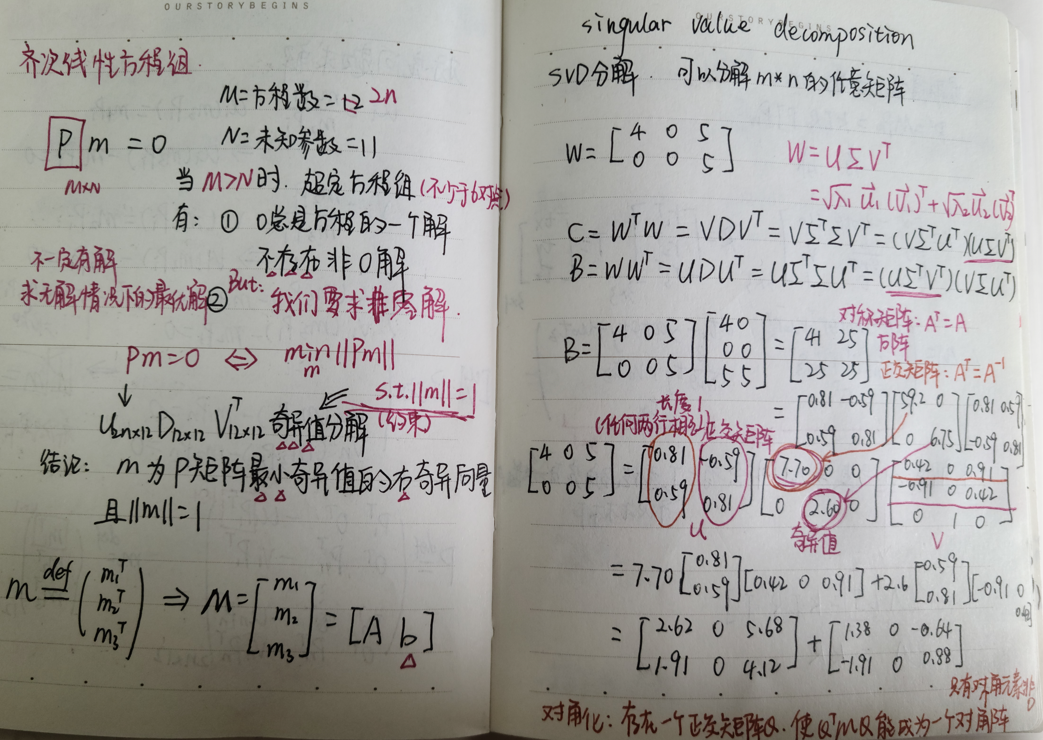 OURSTORYBEGINS
齐次线性方程组.
M=方程数=12 2n
P m = 0 N=未知参数=11
M×N
当 M>N时. 超定方程组(不少于6对点)
有: ① 0总是方程的一个解
不存在非0解
不一定有解
求无解情况下的最优解 ② But: 我们要求非零解.
Pm=0 ⇔ min ‖Pm‖
m
s.t.‖m‖=1
(约束)
↓
U₂ₙₓ₁₂ D₁₂ₓ₁₂ Vᵀ₁₂ₓ₁₂ 奇异值分解
结论: m为P矩阵最小奇异值的右奇异向量
且‖m‖=1
m def= (m₁ᵀ m₂ᵀ m₃ᵀ) ⇒ M= [m₁ m₂ m₃] = [A b]
OURSTORYBEGINS
singular value decomposition
SVD分解. 可以分解m*n的任意矩阵
W= [4 0 5
0 0 5]
W=UΣVᵀ
=√λ₁ u⃗₁(v⃗₁)ᵀ+√λ₂ u⃗₂(v⃗₂)ᵀ
C = WᵀW = VDVᵀ = VΣᵀΣVᵀ = (VΣᵀUᵀ)(UΣVᵀ)
B = WWᵀ = UDUᵀ = UΣᵀΣUᵀ = (UΣᵀVᵀ)(VΣUᵀ)
对称矩阵: Aᵀ=A
方阵
正交矩阵: Aᵀ=A⁻¹
B= [4 0 5
0 0 5] [4 0
0 0
5 5] = [41 25
25 25]
= [0.81 -0.59
0.59 0.81] [59.2 0
0 6.75] [0.81 0.59
-0.59 0.81]
长度1
(任何两行相乘) 正交矩阵
[4 0 5
0 0 5] = [0.81 -0.59
0.59 0.81] [7.70 0 0
0 2.60 0] [0.42 0 0.91
-0.91 0 0.42
0 1 0]
U 奇异值 V
= 7.70 [0.81
0.59] [0.42 0 0.91] + 2.6 [-0.59
0.81] [-0.91 0 0.42]
= [2.62 0 5.68
1.91 0 4.12] + [1.38 0 -0.64
-1.91 0 0.88]
只有对角元素非0
对角化: 存在一个正交矩阵Q. 使QᵀMQ能成为一个对角阵